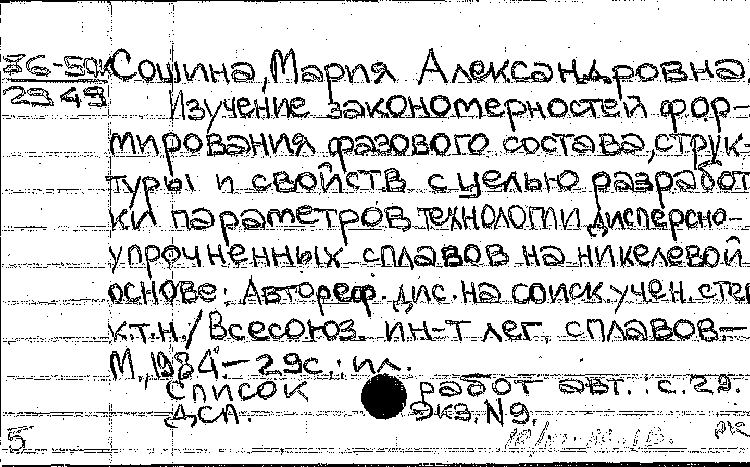 86-50к Сошина, Мария Александровна.
2949 Изучение закономерностей фор-
мирования фазового состава, струк-
туры и свойств с целью разработ
ки параметров технологии дисперсно-
упрочненных сплавов на никелевой
основе: Автореф. дис. на соиск учен. степ
к.т.н. / Всесоюз. ин-т лег. сплавов.-
М., 1984.- 29с.: ил.
Список работ авт.: с. 29.
ДСП. Экз. N 9.
5